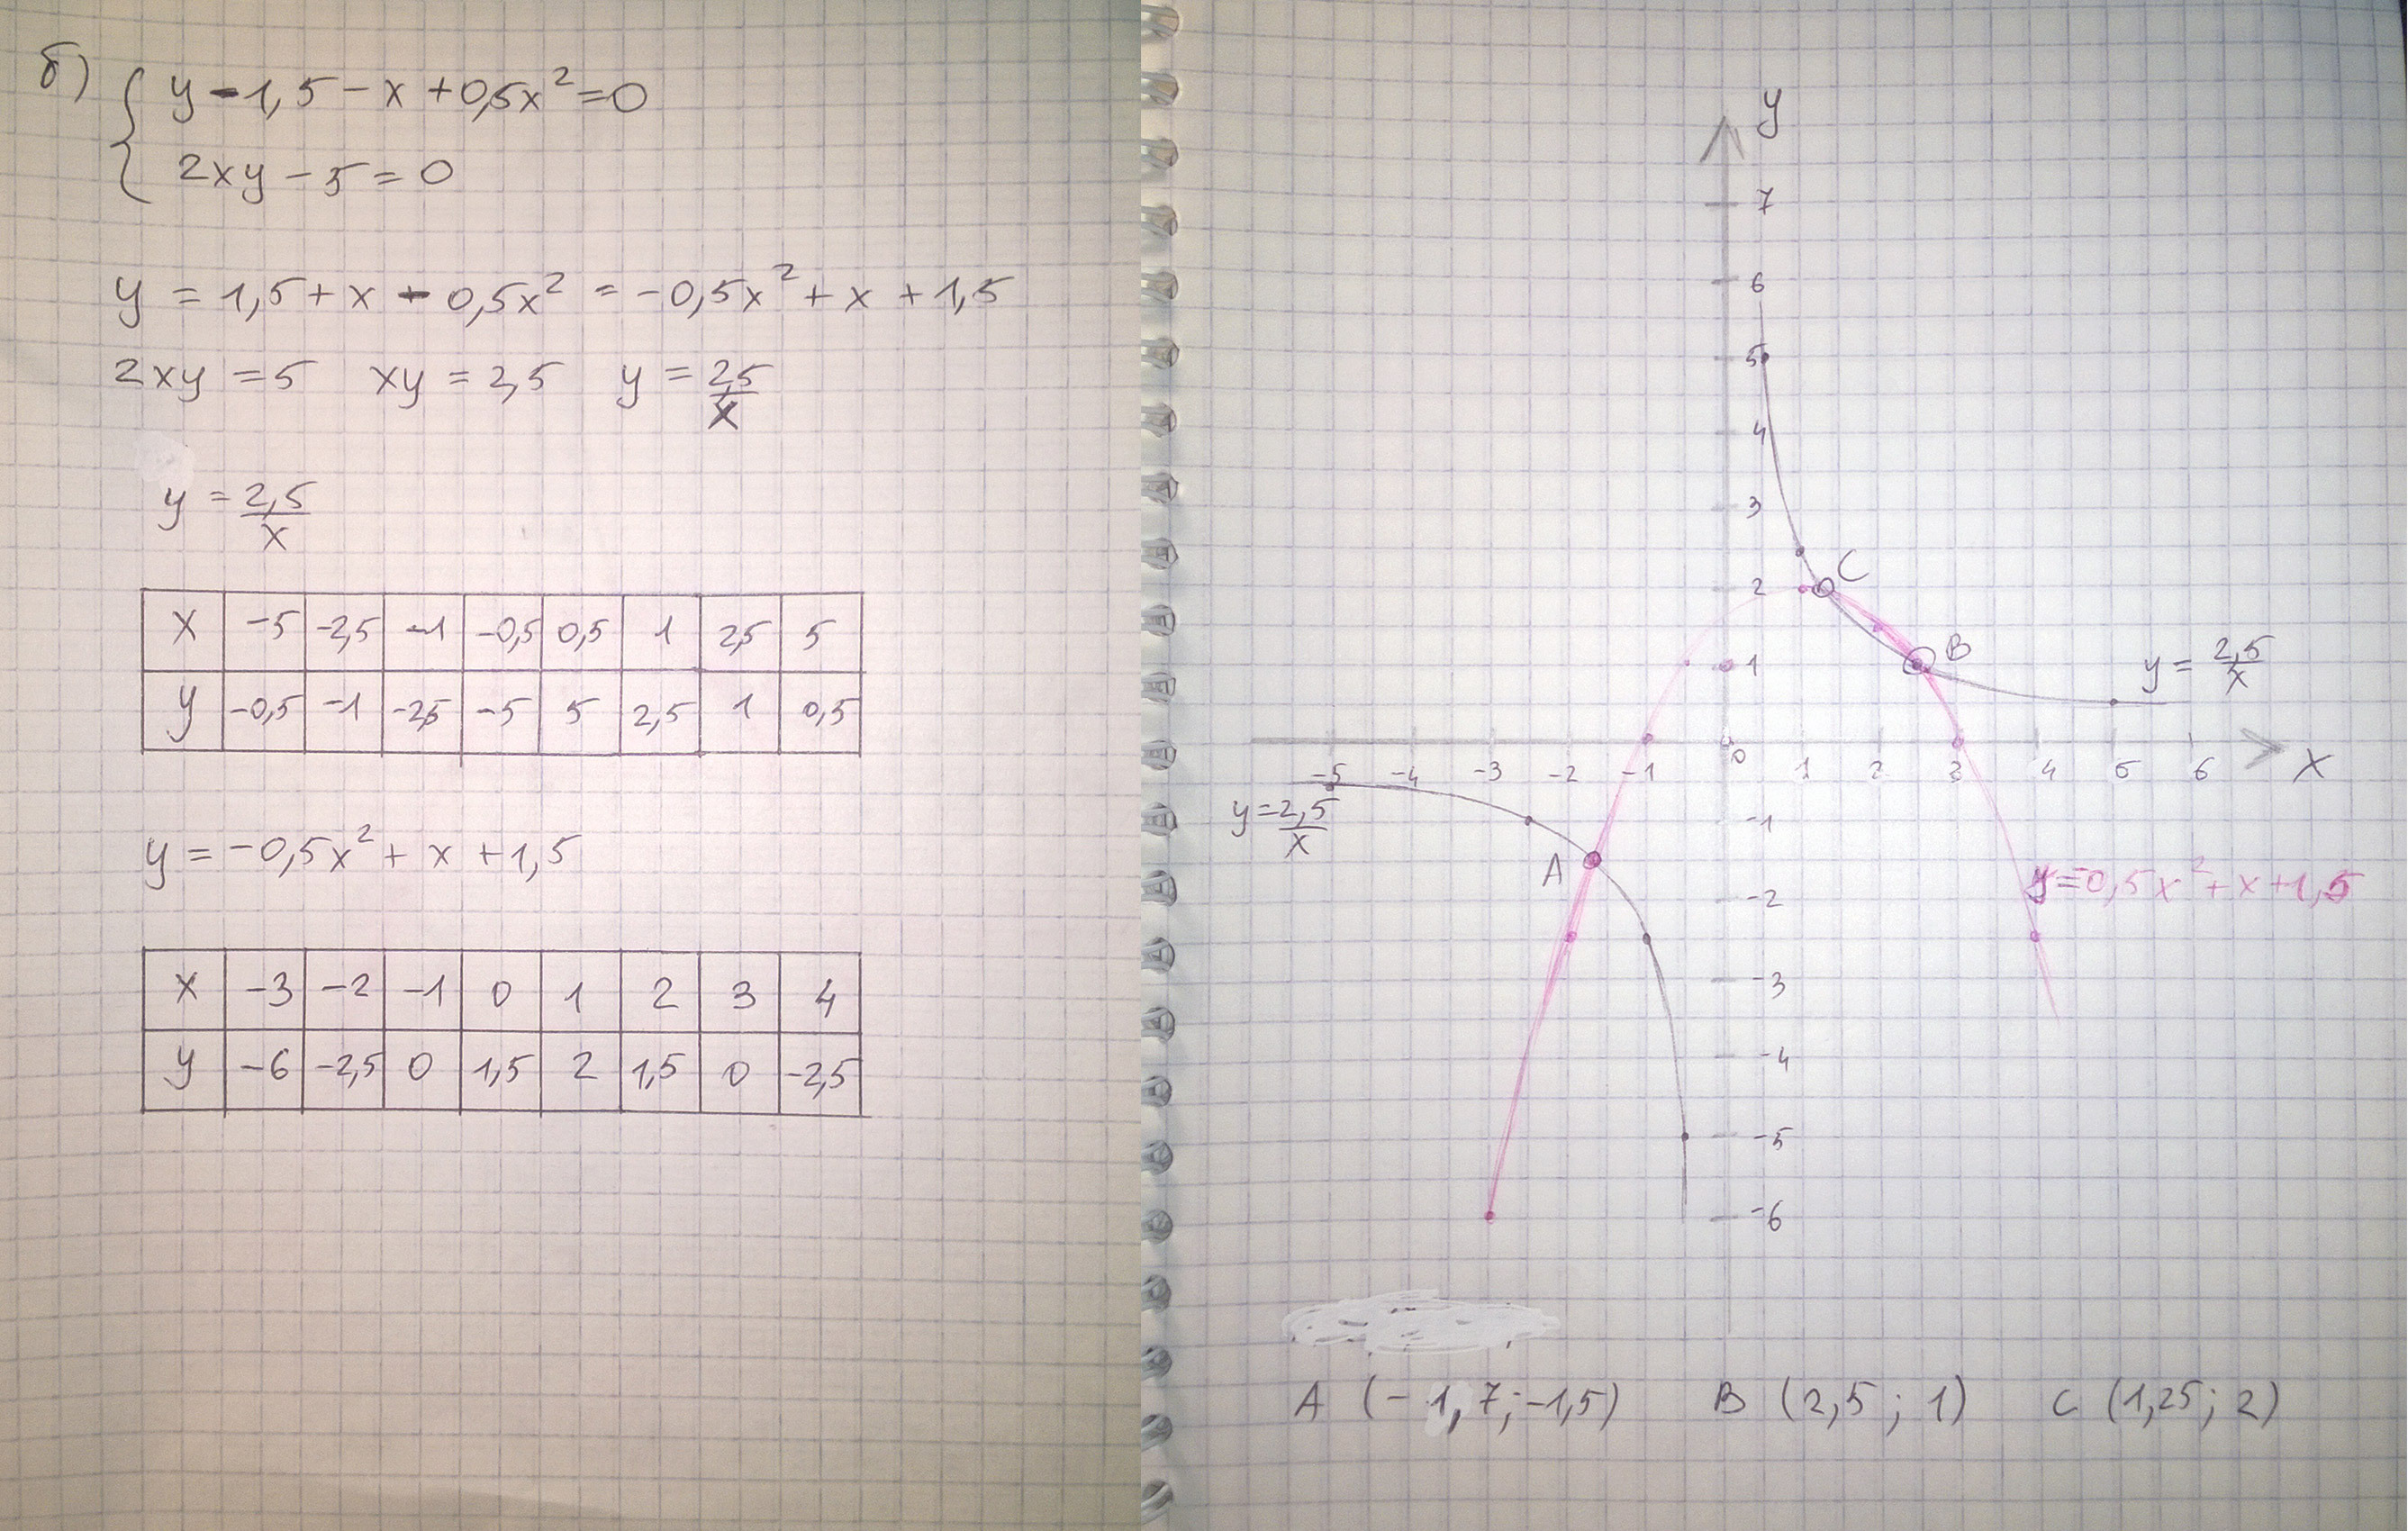 б) { y - 1,5 - x + 0,5x² = 0
2xy - 5 = 0
y = 1,5 + x - 0,5x² = -0,5x² + x + 1,5
2xy = 5 xy = 2,5 y = 2,5/x
y = 2,5/x
x -5 -2,5 -1 -0,5 0,5 1 2,5 5
y -0,5 -1 -2,5 -5 5 2,5 1 0,5
y = -0,5x² + x + 1,5
x -3 -2 -1 0 1 2 3 4
y -6 -2,5 0 1,5 2 1,5 0 -2,5
y
7
6
5
4
3
C
2
B
1
y = 2,5/x
-5 -4 -3 -2 -1 0 1 2 3 4 5 6 x
y = 2,5/x
-1
A
y = -0,5x² + x + 1,5
-2
-3
-4
-5
-6
A (-1,7; -1,5) B (2,5; 1) C (1,25; 2)